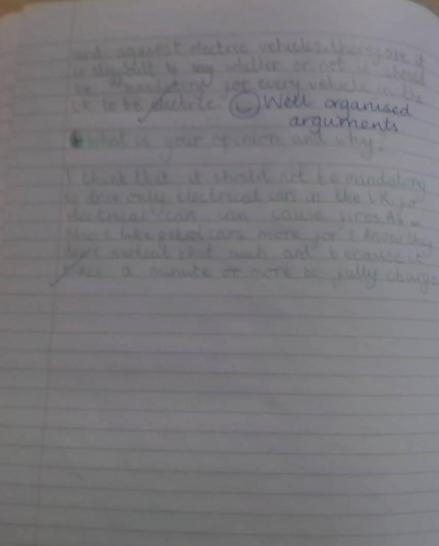 and against electric vehicles, therefore it
is difficult to say whether or not it should
be mandatory for every vehicle in the
U.K to be electric. Well organised
arguments
What is your opinion and why?
I think that it should not be mandatory
to drive only electrical cars in the U.K, for
electrical cars can cause fires. As
Also I like petrol cars more for I know they
don't that much and because it
takes a minute or more to fully charge